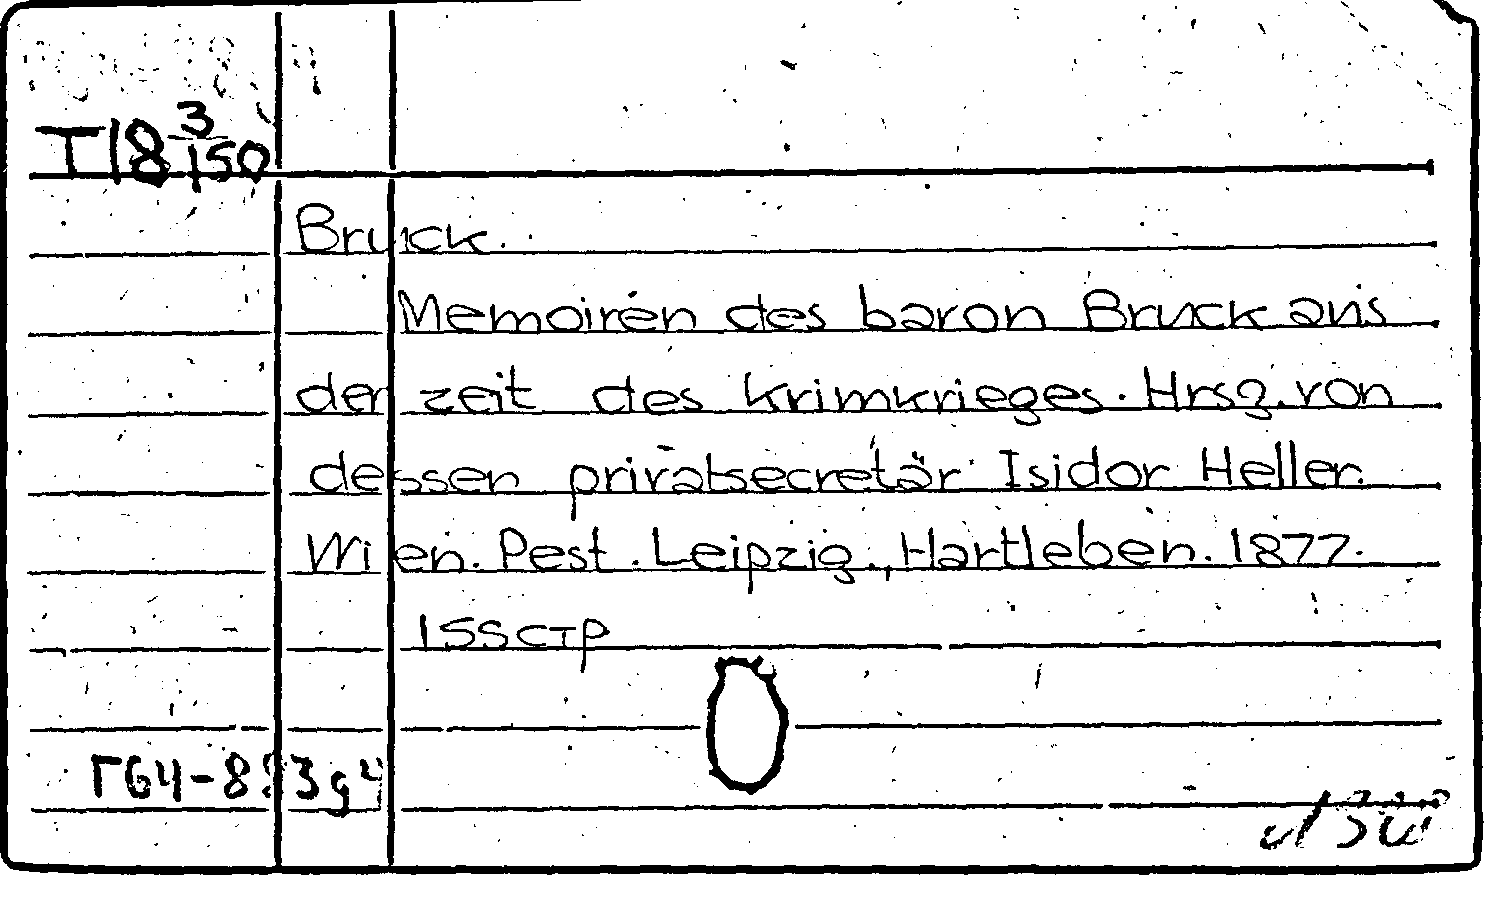 T18 3/150
Bruck.
Memoiren des baron Bruck aus
der zeit des Krimkrieges. Hrsg. von
dessen privatsecretär Isidor Heller.
Wien. Pest. Leipzig., Hartleben. 1877.
155 стр